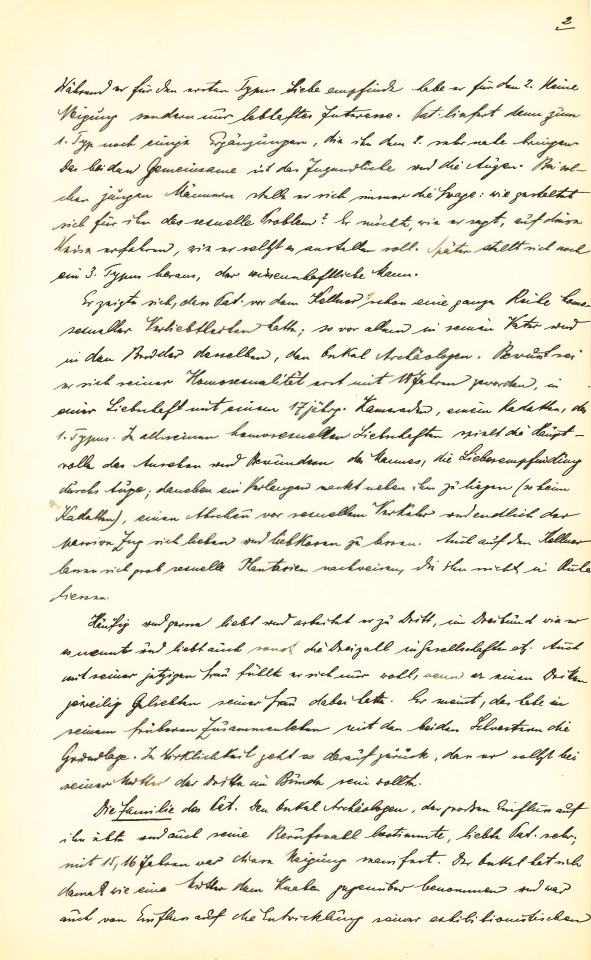 2
Während er für den ersten Typus Liebe empfinde habe er für den 2. keine
Neigung sondern nur lebhaftes Interesse. Pat. liefert denn zum
1. Typ noch einige Ergänzungen, die ihn dem 2. sehr nahe bringen
Das beiden Gemeinsame ist das Jugendliche und die Augen. Bei sol-
chen jungen Männern stelle er sich immer die Frage: wie gestaltet
sich für ihn das sexuelle Problem? Er möchte, wie er sagt, auf diese
Weise erfahren, wie er selbst es anstellen soll. Später stellt sich noch
ein 3. Typus heraus, der wissenschaftliche Mann.
Er zeigte sich, dass Pat. vor dem Kellner schon eine ganze Reihe homo-
sexueller Verliebtheiten hatte; so vor allem in seinen Vater und
in den Bruder desselben, den Onkel Archäologen. Bewusst sei
er sich seiner Homosexualität erst mit 18 Jahren geworden, in
einer Liebschaft mit einem 17 jähr. Kameraden, einem Kadetten, des
1. Typus. In all seinen homosexuellen Liebschaften spielt die Haupt-
rolle das Ansehen und Bewundern des Mannes, die Liebesempfindung
durchs Auge; daneben ein Verlangen nackt neben ihm zu liegen (so beim
Kadetten), einen Abscheu vor sexuellem Verkehr und endlich der
passive Zug sich lieben und liebkosen zu lassen. Auch auf den Kellner
lassen sich grob sexuelle Phantasien nachweisen, die ihn nicht in Ruhe
liessen.
Häufig und gerne liebt und arbeitet er zu Dritt, im Dreibund wie er
es nennt und liebt auch sonst die Dreizahl in Gesellschaften etc. Auch
mit seiner jetzigen Frau fühlte er sich nur wohl, wenn er einen Dritten
jeweilig Geliebten seiner Frau dabei hatte. Er meint, das habe in
seinem früheren Zusammenleben mit den beiden Schwestern die
Grundlage. In Wirklichkeit geht es darauf zurück, dass er selbst bei
seiner Mutter der Dritte im Bunde sein wollte.
Die Familie des Pat. Den Onkel Archäologen, der grossen Einfluss auf
ihn übte und auch seine Berufswahl bestimmte, liebte Pat. sehr,
mit 15, 16 Jahren war diese Neigung manifest. Der Onkel hat sich
damals wie eine Mutter dem Knaben gegenüber benommen und war
auch von Einfluss auf die Entwicklung seiner exhibitionistischen